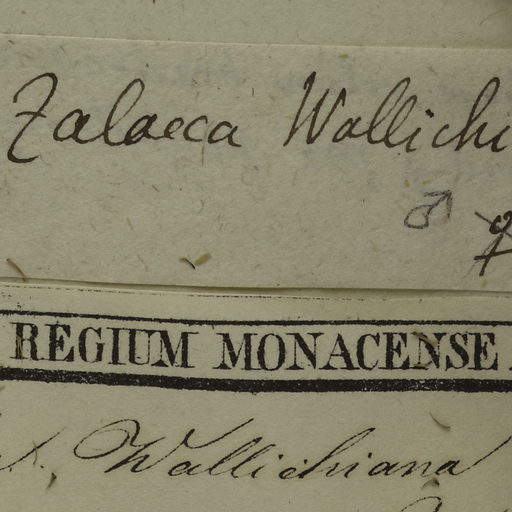 Zalacca Wallichi
♂
♀
REGIUM MONACENSE.
Wallichiana